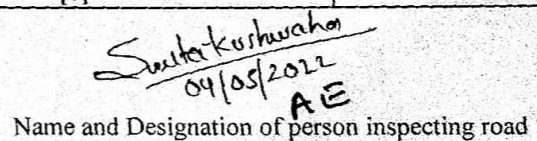 Smita Kushwaha
04/05/2022
AE
Name and Designation of person inspecting road